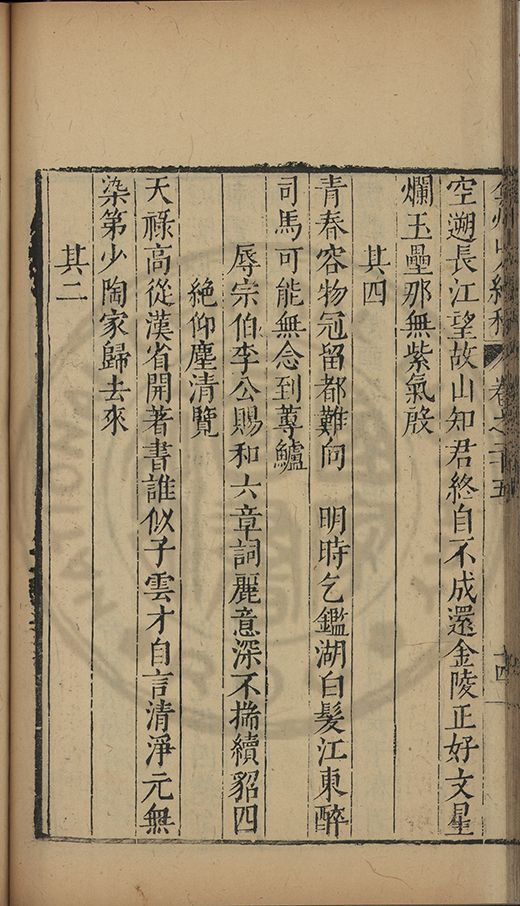 弇州山人續稿 卷之二十五 十四
空遡長江望故山知君終自不成還金陵正好文星
爛玉壘那無紫氣殷
其四
青春容物冠留都難向 明時乞鑑湖白髮江東醉
司馬可能無念到蓴鱸
辱宗伯李公賜和六章詞麗意深不揣續貂四
絶仰塵清覽
天祿高從漢省開著書誰似子雲才自言清淨元無
染第少陶家歸去來
其二